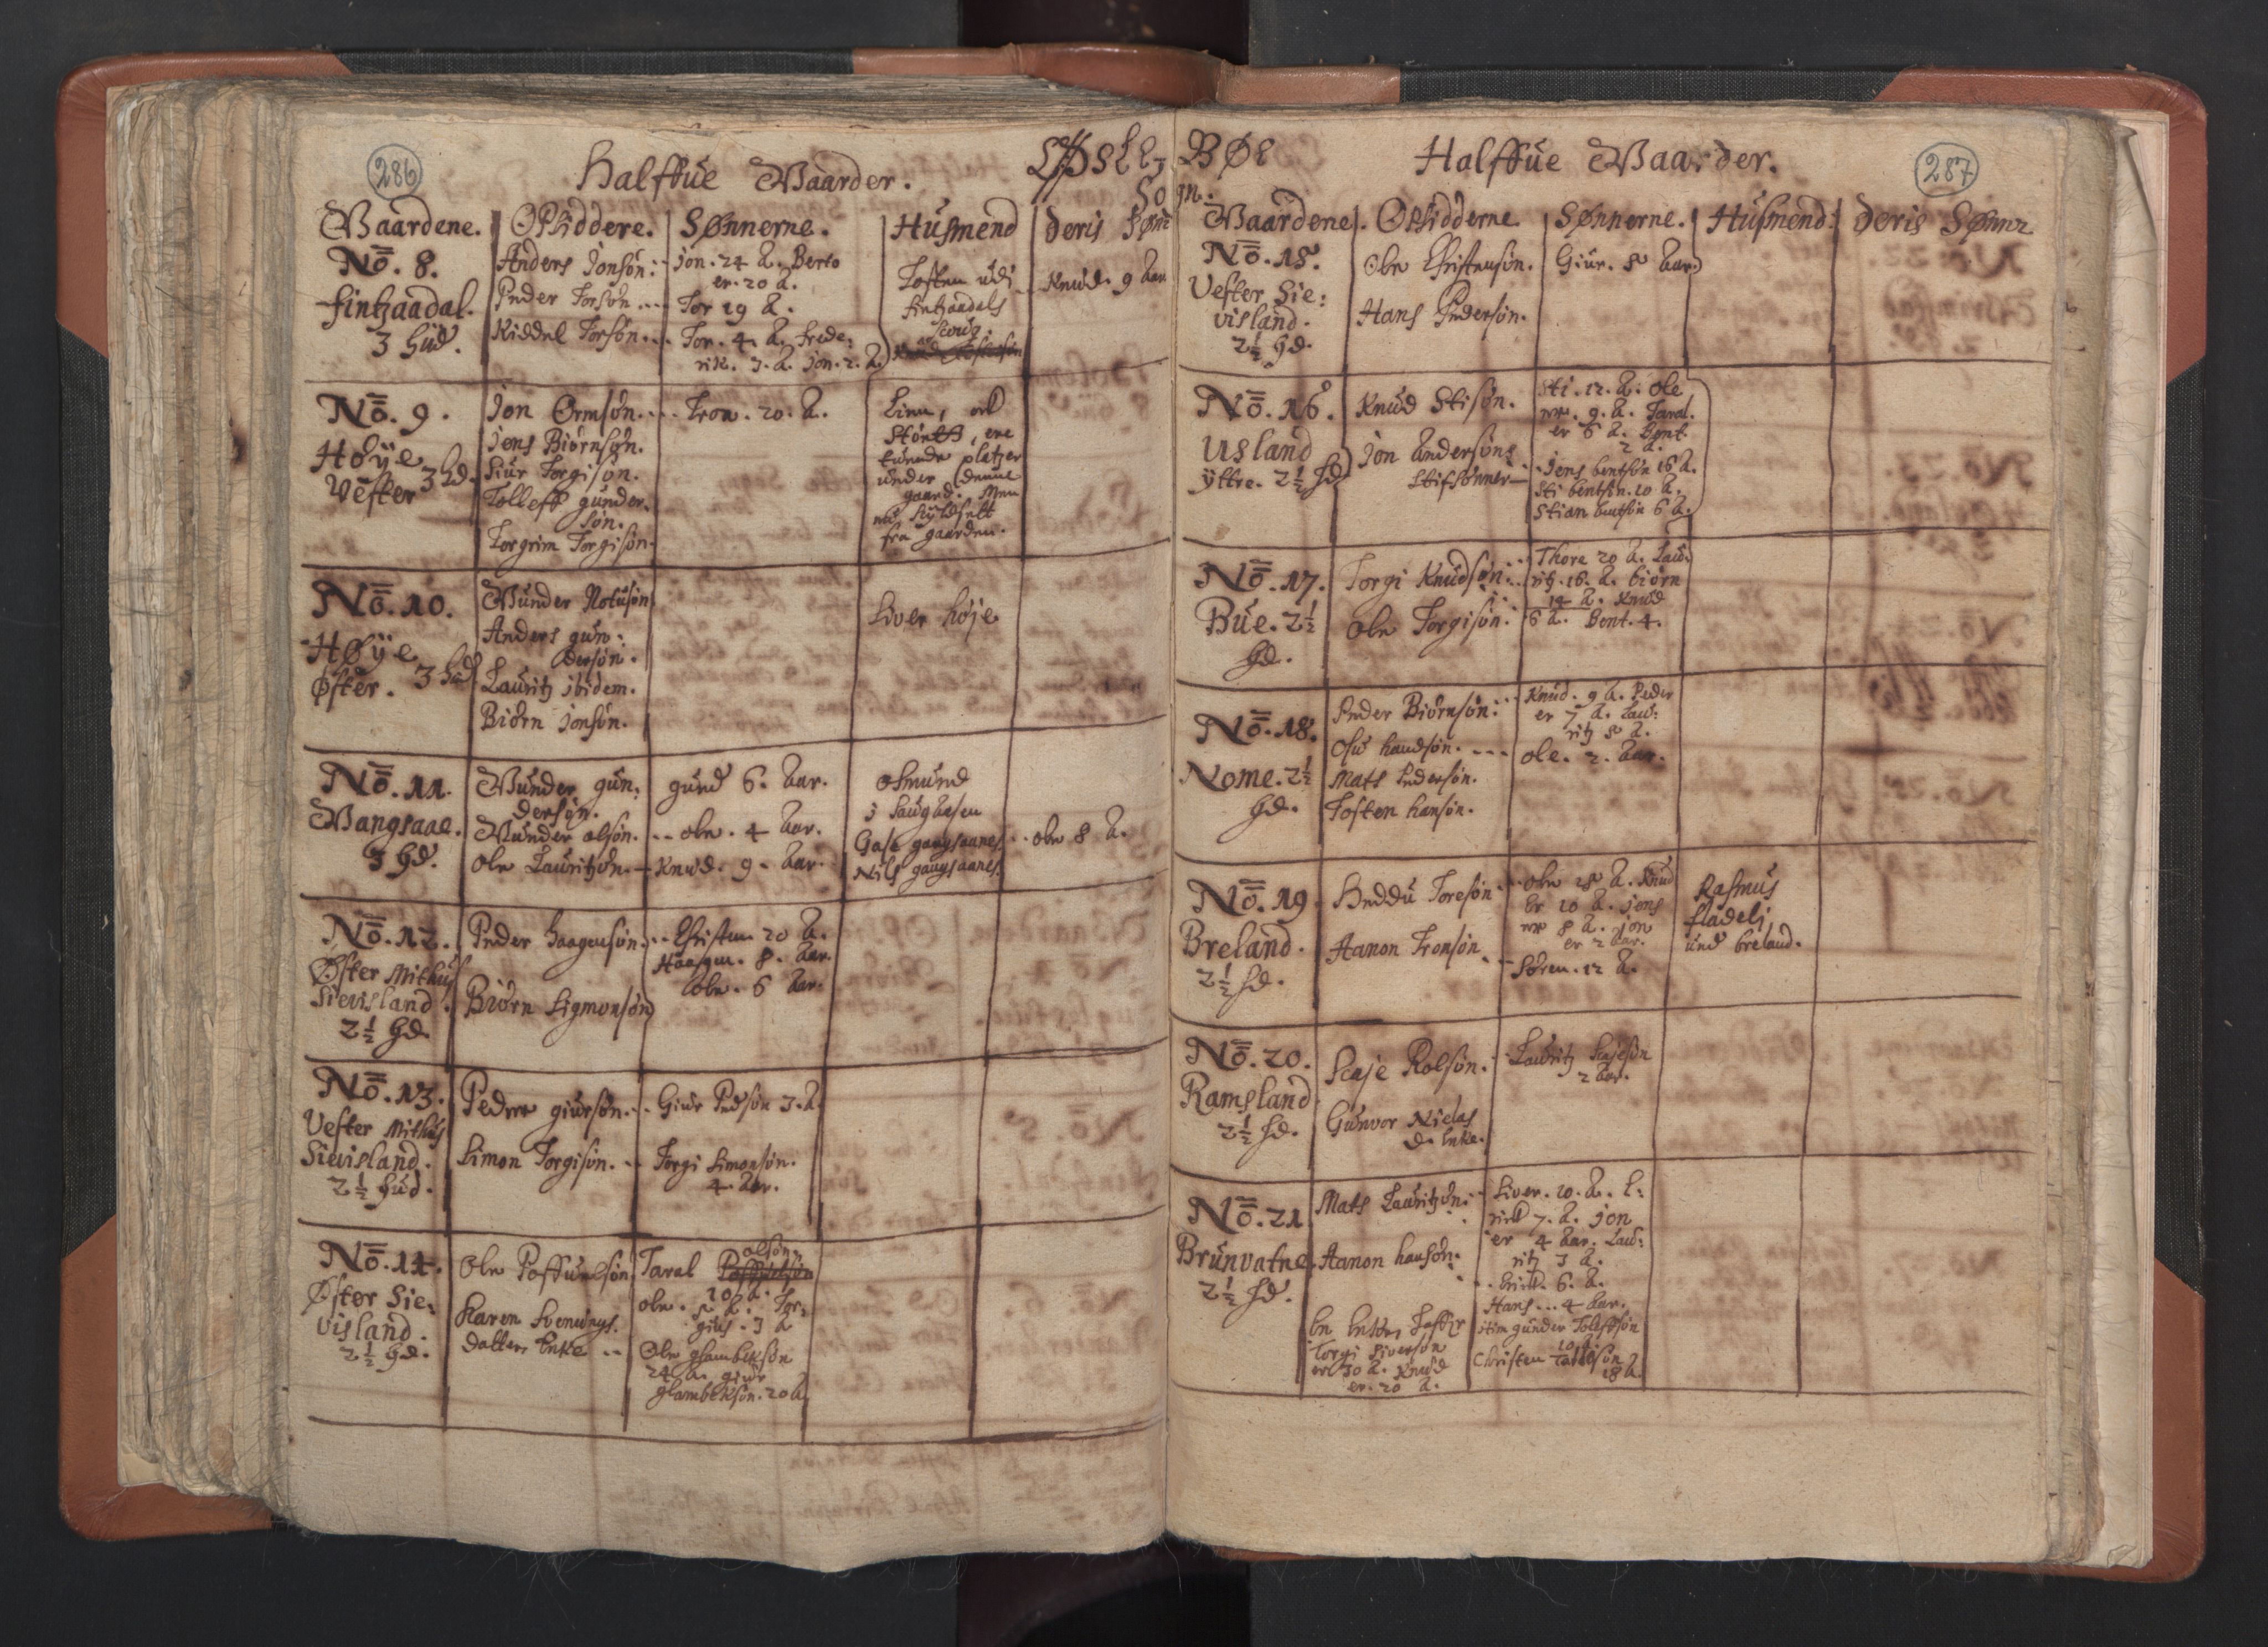 286
Halffue Gaarder.
Gaardene. Opsiddere. Sønnerne. Husmend Deris Sønn
No. 8.
fintzaadal.
3 Hud.
Anders Jonsøn:
Peder Torsøn ...
Kiddel Torsøn...
Jon. 24 A. Bero
er. 20 A.
Tor 19 A.
Tor. 4 A. Frede:
rik. 3. A. Jon. 2. A.
Tosten udi
fintzaadals
Knud. 9 Aar
No. 9.
Höÿe
Vester 3 Hd.
Jon Ormsøn...
Jens Biørnsøn.
Siur Torgisøn.
Tolleff gunder.
søn.
Torgrim Torgisøn.
Tron. 20. A.
Lien, oc
ere
tuende platzer
under denne
gaard. Men
fra gaarden.
No. 10.
Høÿe
Øster. 3 Hud
Gunder
Anders gun:
dersøn.
Lauritz ibidem.
Biørn Jonsøn.
Siver höje
No. 11.
Gangsaae.
3 Hd.
Gunder gun:
dersøn.
Gunder olsøn.
Ole Lauritzøn.
gund 6. Aar.
ole. 4 Aar.
Knud. 9. Aar.
Osmund
i
gangsaanes
Nils gangsaanes.
ole 8 A.
No. 12.
Øster Mithus
Sievisland.
2½ Hd.
Peder Haagensøn.
Biørn Sigmonsøn
Christen 20 A.
Haagen. 8. Aar.
ole. 6 Aar.
No. 13.
Vester Mithus
Sievisland.
2½ Hud.
Peder giursøn.
Simon Torgisøn.
Giur Pedsøn 3. A.
Torgi Simonsøn.
4. Aar.
No. 14.
Øster Sie:
visland.
2½ Hd.
Ole Poffuelsøn
Karen Svenings.
datter Enke
Taral olsøn
10 A.
ole. 5 A. Tor:
gius. 3 A
Ole glambeksøn
24 A. giur
glambeksøn. 20 A.
LØSLE,
So
BØE
gn.
287
Halffue Gaarder.
Gaardene. Opsidderne. Sønnerne. Husmend: Deris Sønner
No. 15.
Vester Sie:
visland.
2½ Hd.
Ole Christensøn.
Hans Pedersøn.
Giur. 8 Aar
No. 16.
Usland
ÿttre. 2½ Hd
Knud Stisøn.
Jon Andersøns
Stifsønner
Sti. 12. A. Ole
nr. 9. A. Taral.
er 6 A. Bent
2 A.
Jens bentsøn 16 A.
Sti bentsøn. 10 A.
Stian bentsøn 6 A.
No. 17.
Bue. 2½
Hd.
Torgi Knudsøn:
Ole Torgisøn.
Thore 20 A. Lau:
ritz. 16. A. biørn
14 A. Knud
6 A. Bent. 4.
No. 18.
Nome. 2½
Hd.
Peder Biørnsøn:
Mats Pedersøn.
Tosten hansøn.
Knud. 9 A. Peder
er 7 A. Lau:
ritz 5 A.
ole. 2. Aar.
No. 19
Breland.
2½ Hd.
Heddu Toresøn
Aanon Tronsøn.
ole 18 A. Knud
er 10 A. Jens
nr 8 A. Jon
er 2 Aar.
Søren. 12 A.
Rasmus
fladeli
und breland.
No. 20.
Ramsland
2½ Hd.
Scaje Rolsøn.
Gunvor Niels
d. Enke.
Lauritz Scajesøn
2 Aar.
No. 21
Brunvatne.
2½ Hd.
Mats Lauritzøn:
Aanon hansøn.
En Enke,
Torgi Siversøn
er 30 A. Knud
er. 20 A.
Siver. 10. A. E:
rick 7. A. Jon
er 4 Aar. Lau:
ritz 3 A.
Erick. 6. A.
Hans... 4 Aar.
item gunder Tolefsøn
10 A.
Christen
18 A.